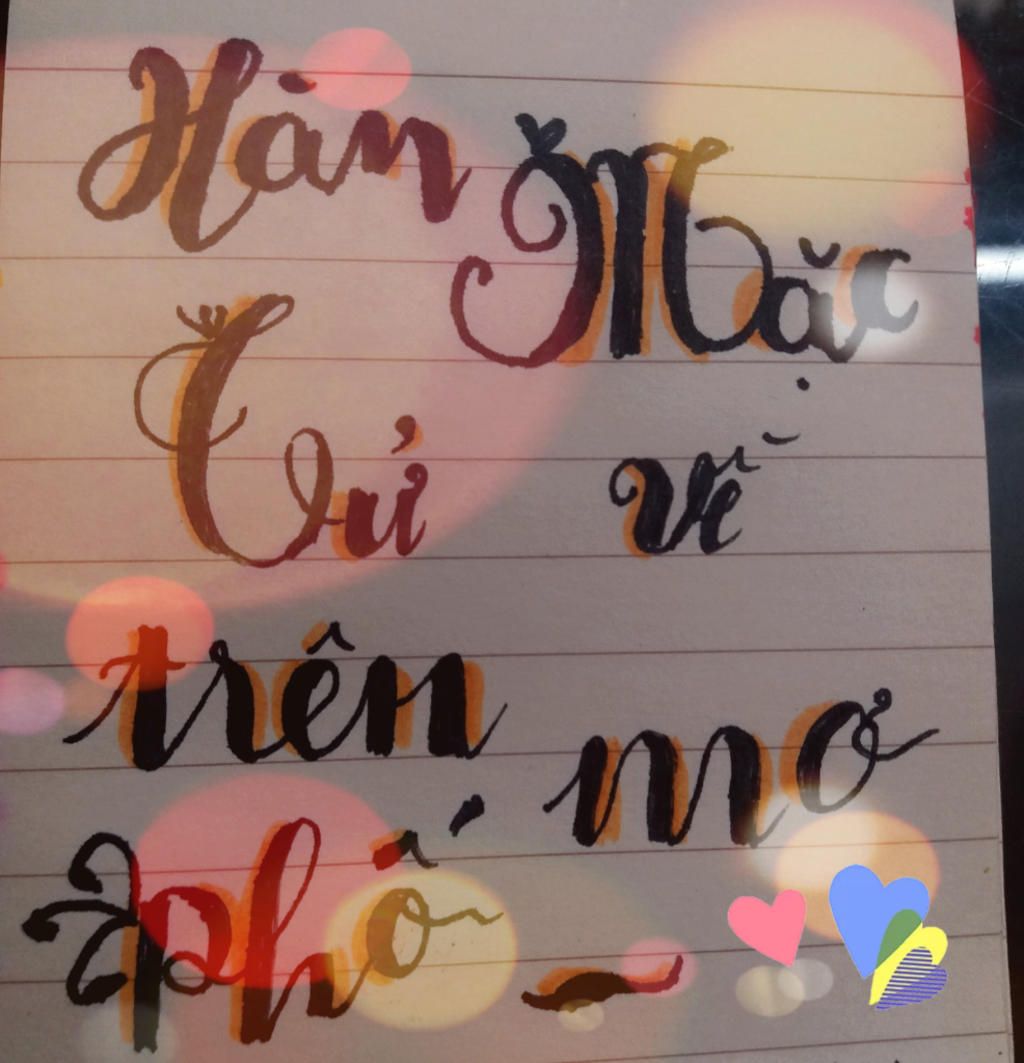 Hàn Mặc
Tử về
trên mơ
phố